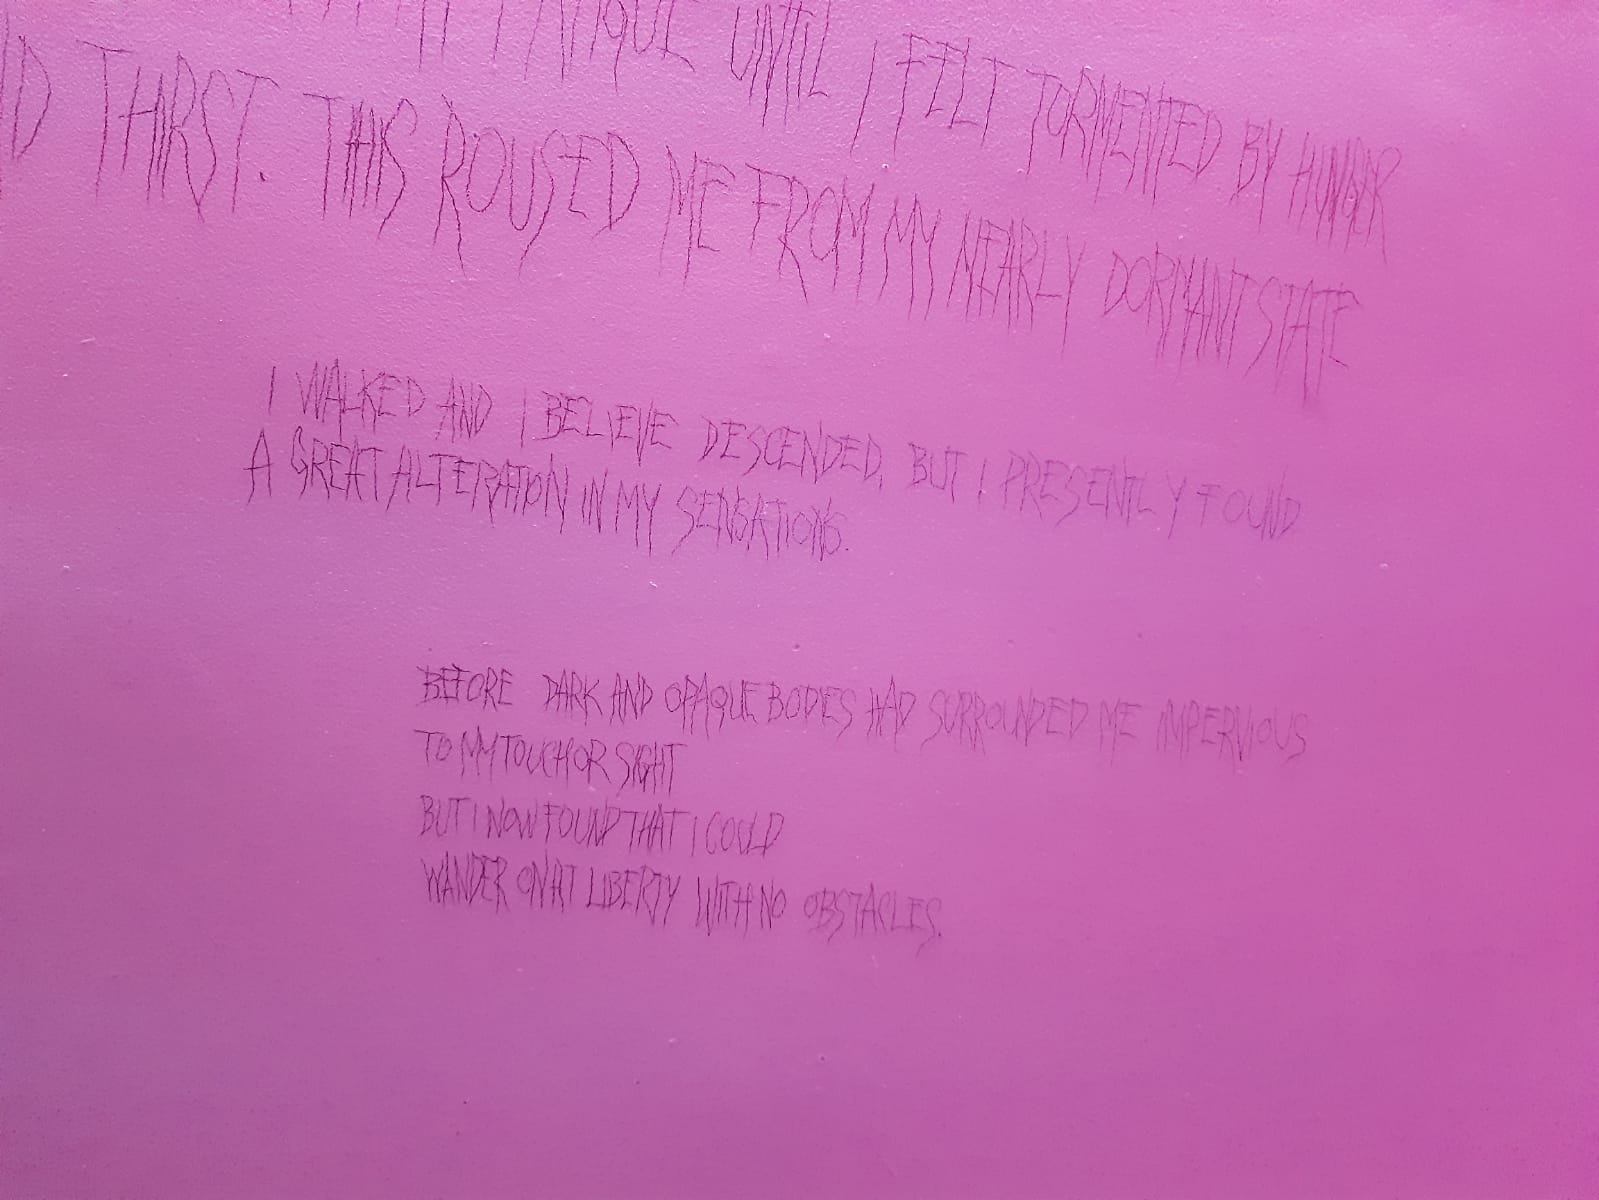 FATIGUE UNTIL I FELT TORMENTED BY HUNGER
THIRST. THIS ROUSED ME FROM MY NEARLY DORMANT STATE
I WALKED AND I BELIEVE DESCENDED, BUT I PRESENTLY FOUND
A GREAT ALTERATION IN MY SENSATIONS.
BEFORE DARK AND OPAQUE BODIES HAD SURROUNDED ME IMPERVIOUS
TO MY TOUCH OR SIGHT
BUT I NOW FOUND THAT I COULD
WANDER ON AT LIBERTY WITH NO OBSTACLES.